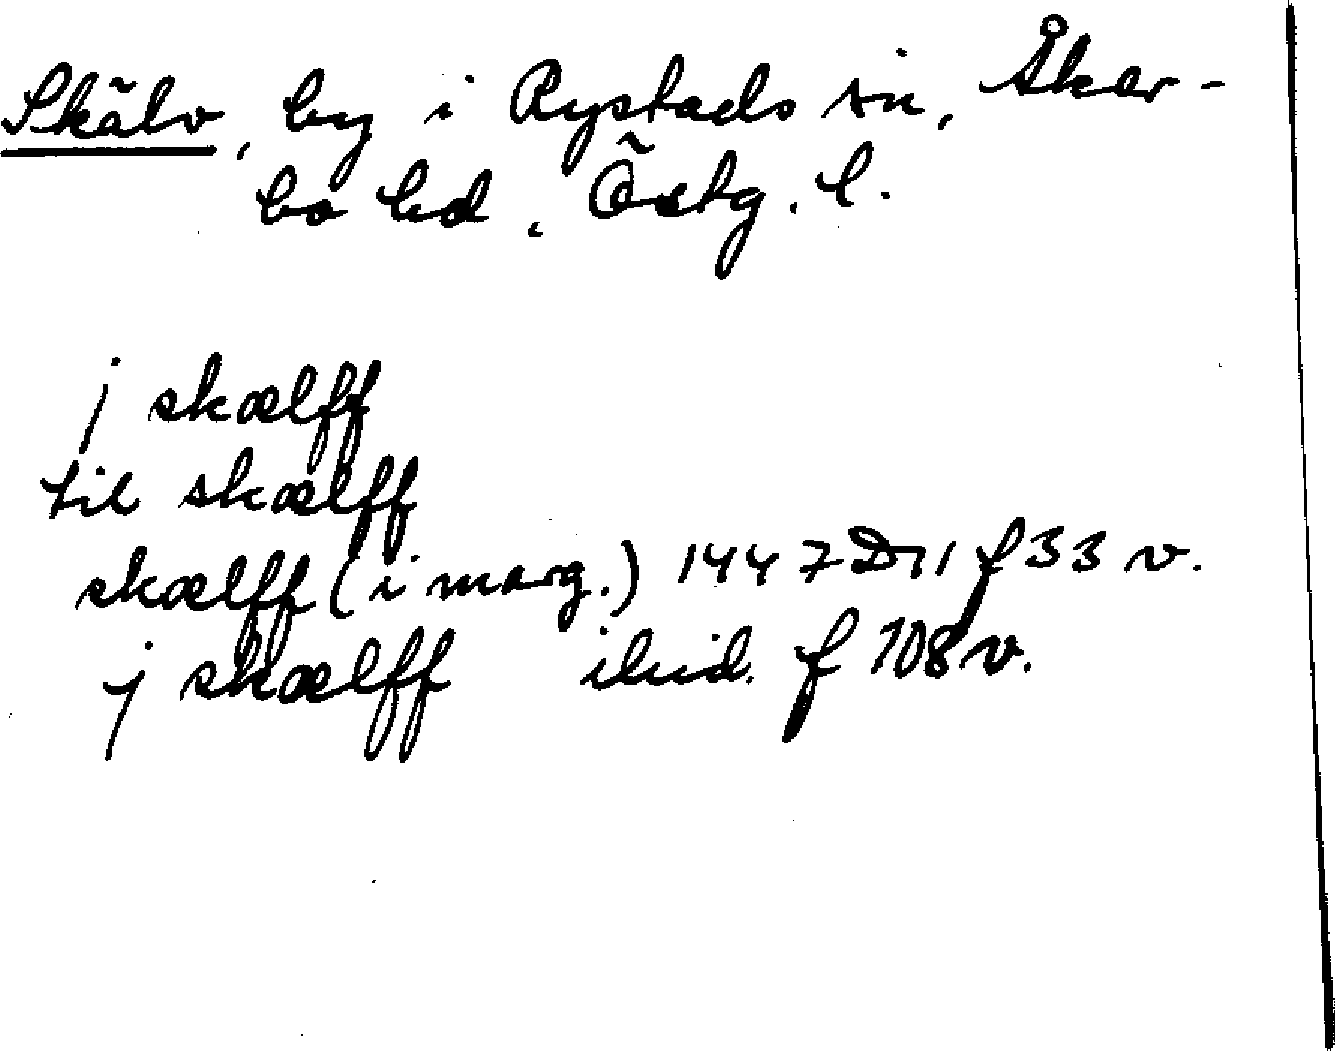 Skälv, by i Rystads sn, Åker-
bo hd, Östg. l.
j skælff
til skælff
skælff (i marg.) 1447 D11 f 33 v.
j skælff ibid. f 108 v.